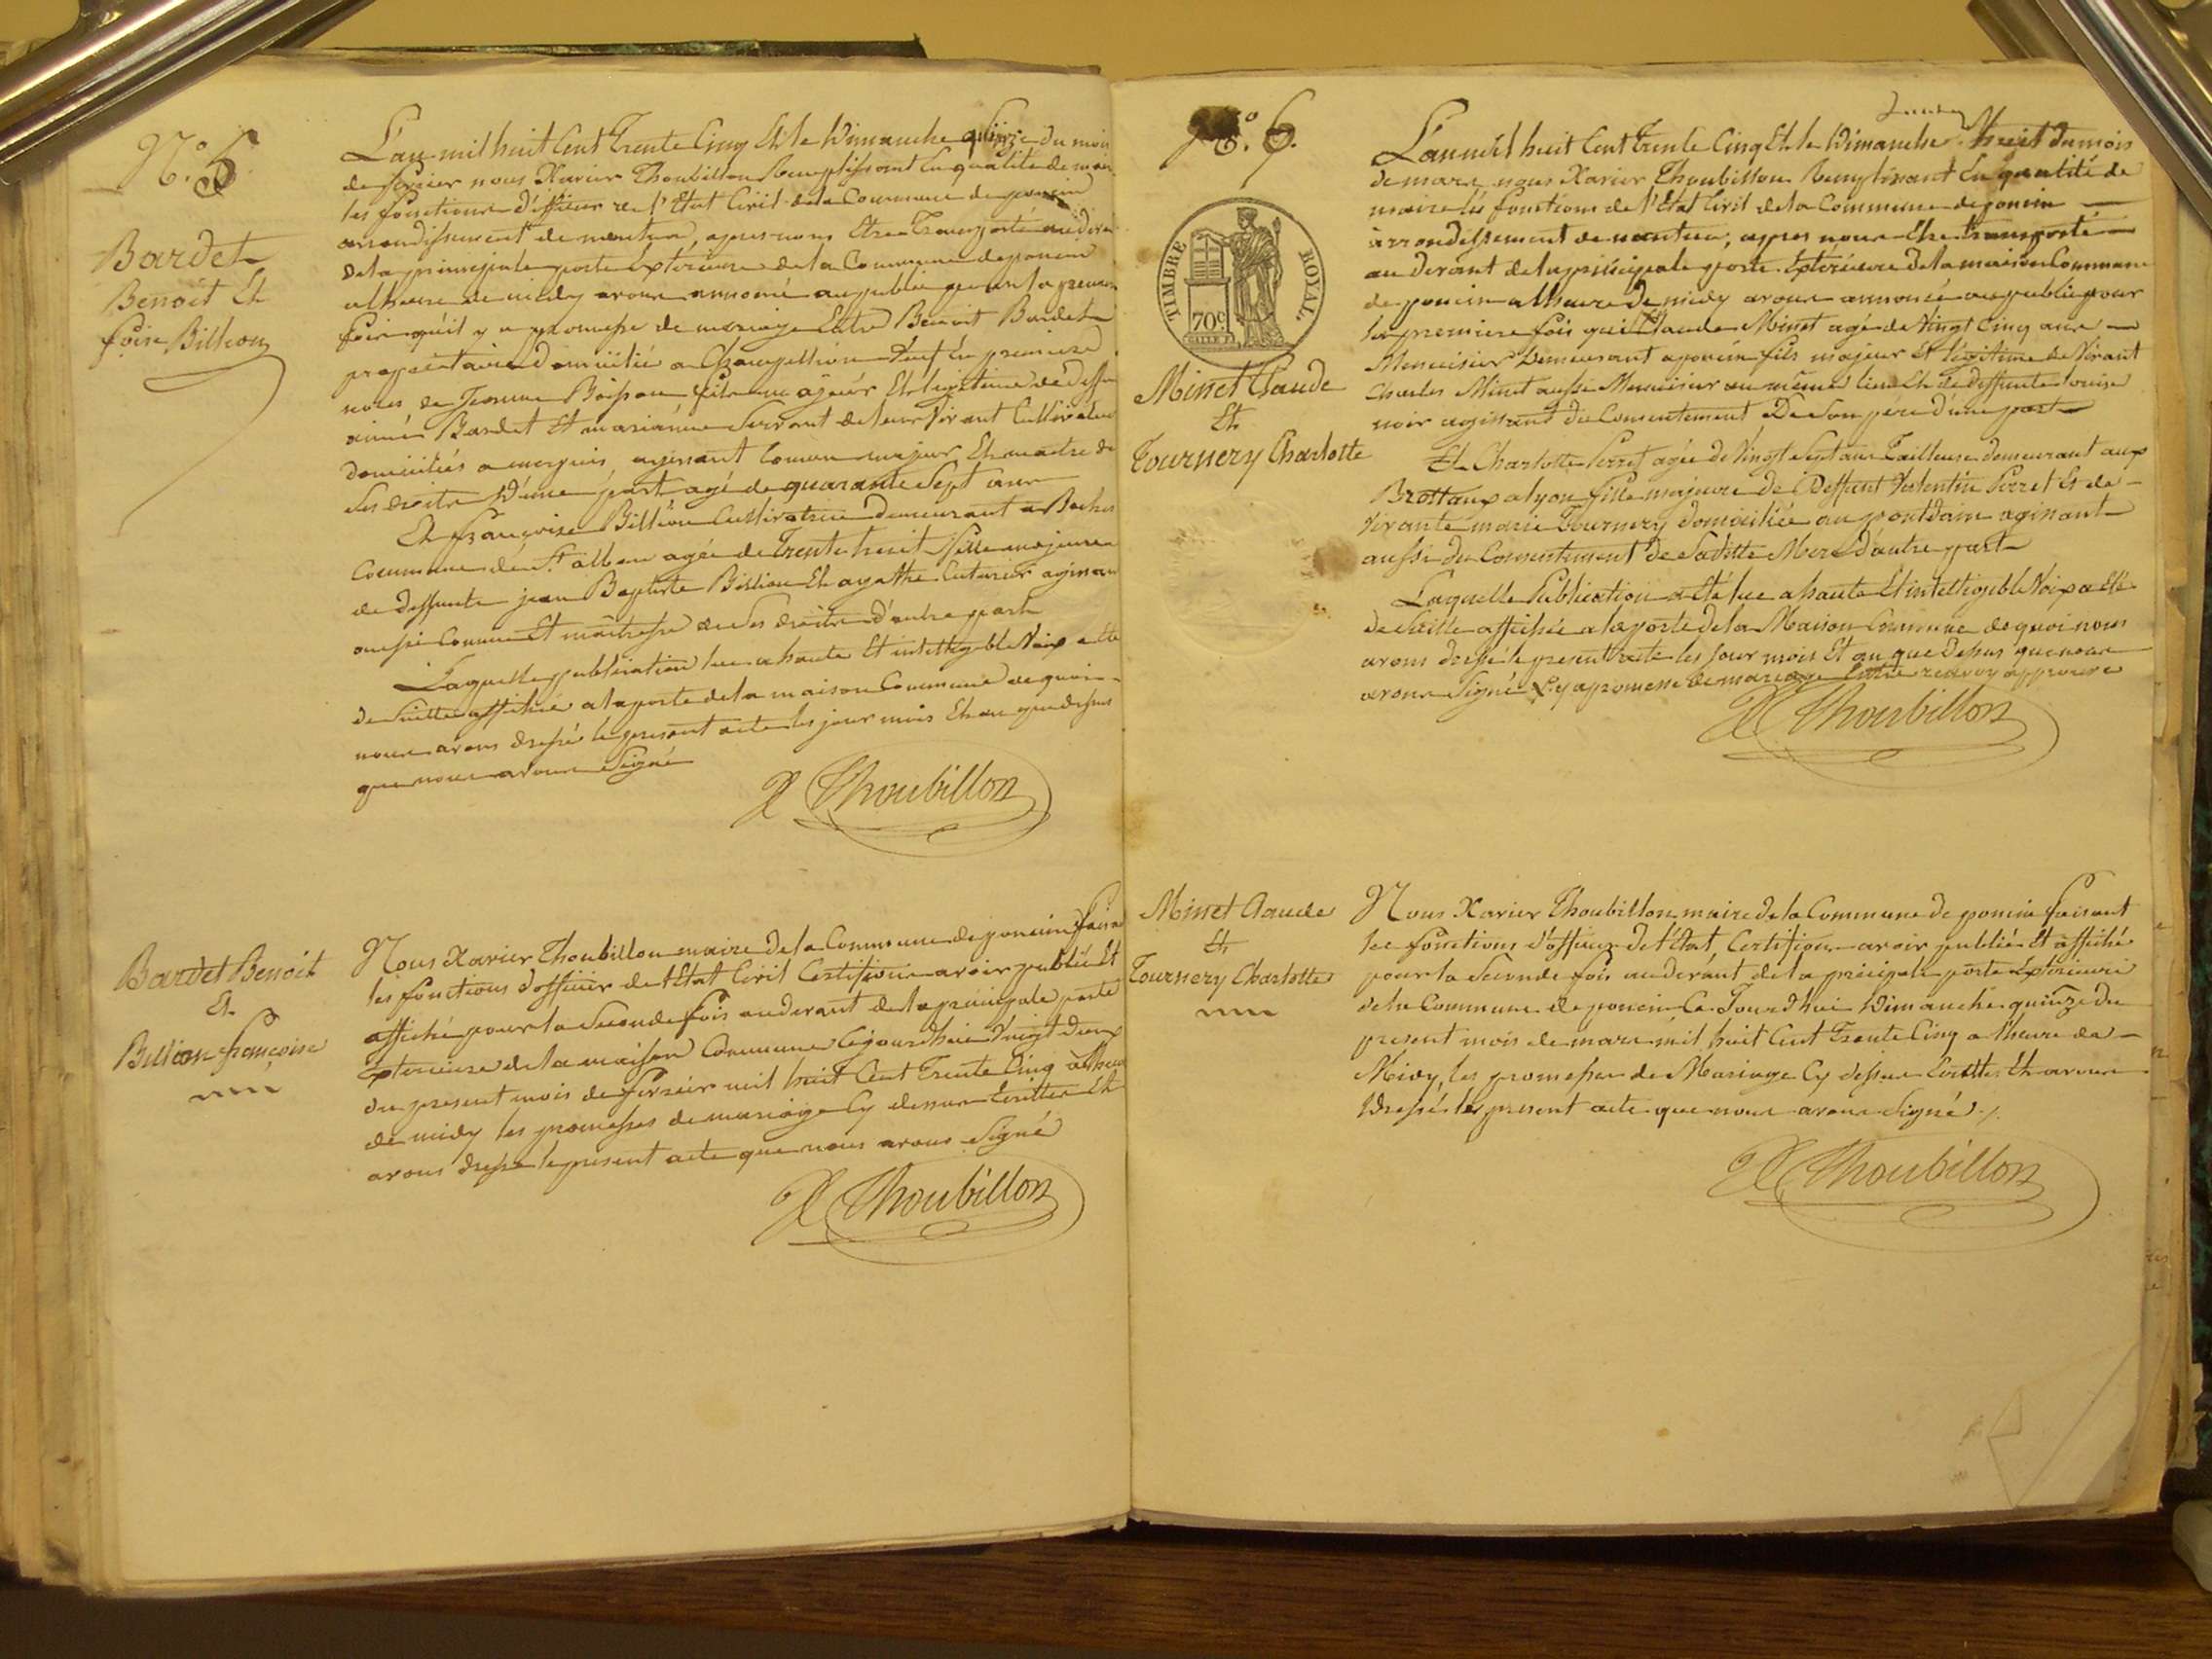 N.° 5
Bardet
Benoit Et
foise Billion
L'an mil huit Cent Trente Cinq Et le Dimanche quinze du mois
de fevrier nous Xavier Thoubillon Remplissant En qualité de maire
les fonctions d'officier de l'Etat Civil de la Commune de poncin
arrondissement de nantua, apres nous Etre Transporté au devant
de la principale porte Exterieure de la Commune de poncin
a l'heure de midy avons annoncé au public pour la premiere
fois qu'il y a promesse de mariage Entre Benoit Bardet
propriétaire domicilié a Champeillion veuf En premiere
noces de Jeanne Boisson fils majeur Et legitime de deffun
aimé Bardet Et marianne Servant de leur Vivant Cultivateurs
domiciliés a merpuis, agissant Comme majeur Et maitre de
Ses droits D'une part agé de quarante Sept ans
Et françoise Billion Cultivatrice demeurant a Boches
Commune de St. alban agée de Trente huit fille majeure
de deffunts jean Baptiste Billion Et agathe agissan
aussi Comme Et maitresse de Ses droits D'autre part
Laquelle publication lue a haute Et intelligible Voix a été
de Suitte affichée a la porte de la maison Commune de quoi
nous avons dressé le present acte les jour mois Et an que dessus
que nous avons Signé
X Thoubillon
Bardet Benoit
Et
Billion françoise
Nous Xavier Thoubillon maire de la Commune de poncin faisan
les fonctions d'officier de l'Etat Civil Certifions avoir publié Et
affiché pour la Seconde fois au devant de la principale porte
Exterieure de la maison Commune Cejourdhui Vingt deux
du present mois de fevrier mil huit Cent Trente Cinq a l'heure
de midy les promesses de mariage Cy dessus Ecrittes Et
avons dressé le present acte que nous avons Signé
X Thoubillon
N.° 6.
TIMBRE ROYAL.
70 c.
Minet Claude
Et
Tournery Charlotte
L'an mil huit Cent Trente Cinq Et le Dimanche huit du mois
de mars nous Xavier Thoubillon Remplissant En qualité de
maire les fonctions de l'Etat Civil de la Commune de poncin
arrondissement de nantua, apres nous Etre transporté
au devant de la principale porte Exterieure de la maison Commune
de poncin a l'heure De midy avons annoncé au public pour
la premiere fois que Claude Minet agé de Vingt Cinq ans
Menuisier Demeurant a poncin fils majeur Et légitime de Vivant
Charles Minet aussi Menuisier au même lieu Et de deffunte louise
noir agissant du Consentement De Son pére d'une part
Et Charlotte Perret agée de Vingt Sept ans Tailleuse demeurant aux
Brottaux a lyon fille majeure de Deffunt Valentin Perret Et de
Vivante marie Tournery domiciliée au pontdain agissant
aussi du Consentement de Saditte Mere d'autre part
Laquelle Publication a Eté lue a haute Et intelligible Voix a Eté
de Suitte affichée a la porte de la Maison Commune de quoi nous
avons dressé le present acte les Jour mois Et an que Dessus que nous
avons Signé Il y a promesse de mariage Entre renvoy approuvé
X Thoubillon
Minet Claude
Et
Tournery Charlotte
Nous Xavier Thoubillon maire de la Commune de poncin faisant
les fonctions d'officier de l'Etat, Certifions avoir publié Et affiché
pour la Seconde fois au devant de la principale porte Exterieure
de la Commune de poncin Ce Jour d'hui Dimanche quinze du
present mois de mars mil huit Cent Trente Cinq a l'heure de
Midy, les promesses de Mariage Cy dessus Ecrittes Et avons
Dressé le present acte que nous avons Signé ./.
X Thoubillon